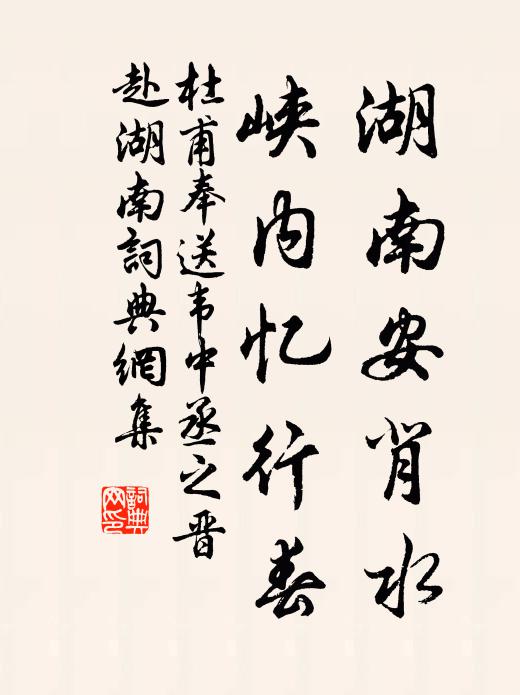 湖南安背水
峡内忆行春
杜甫奉送韦中丞之晋
赴湖南詞典網集
詞典
网印